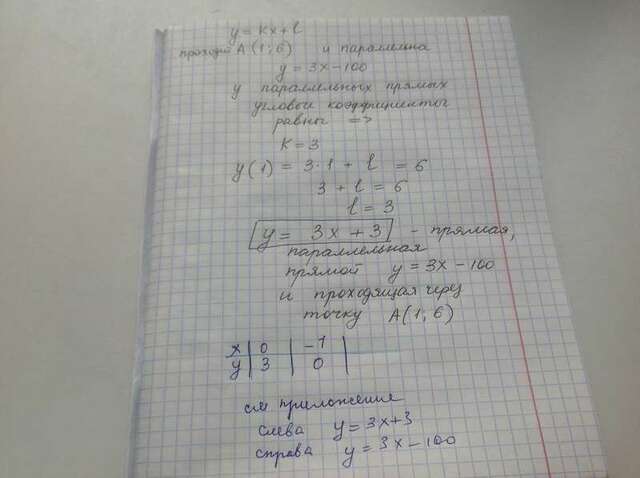 y = kx + l
проходит A(1; 6) и параллельна
y = 3x - 100
у параллельных прямых
угловые коэффициенты
равны =>
k = 3
y(1) = 3·1 + l = 6
3 + l = 6
l = 3
y = 3x + 3 - прямая,
параллельная
прямой y = 3x - 100
и проходящая через
точку A(1; 6)
x | 0 | -1 |
y | 3 | 0 |
см приложение
слева y = 3x + 3
справа y = 3x - 100